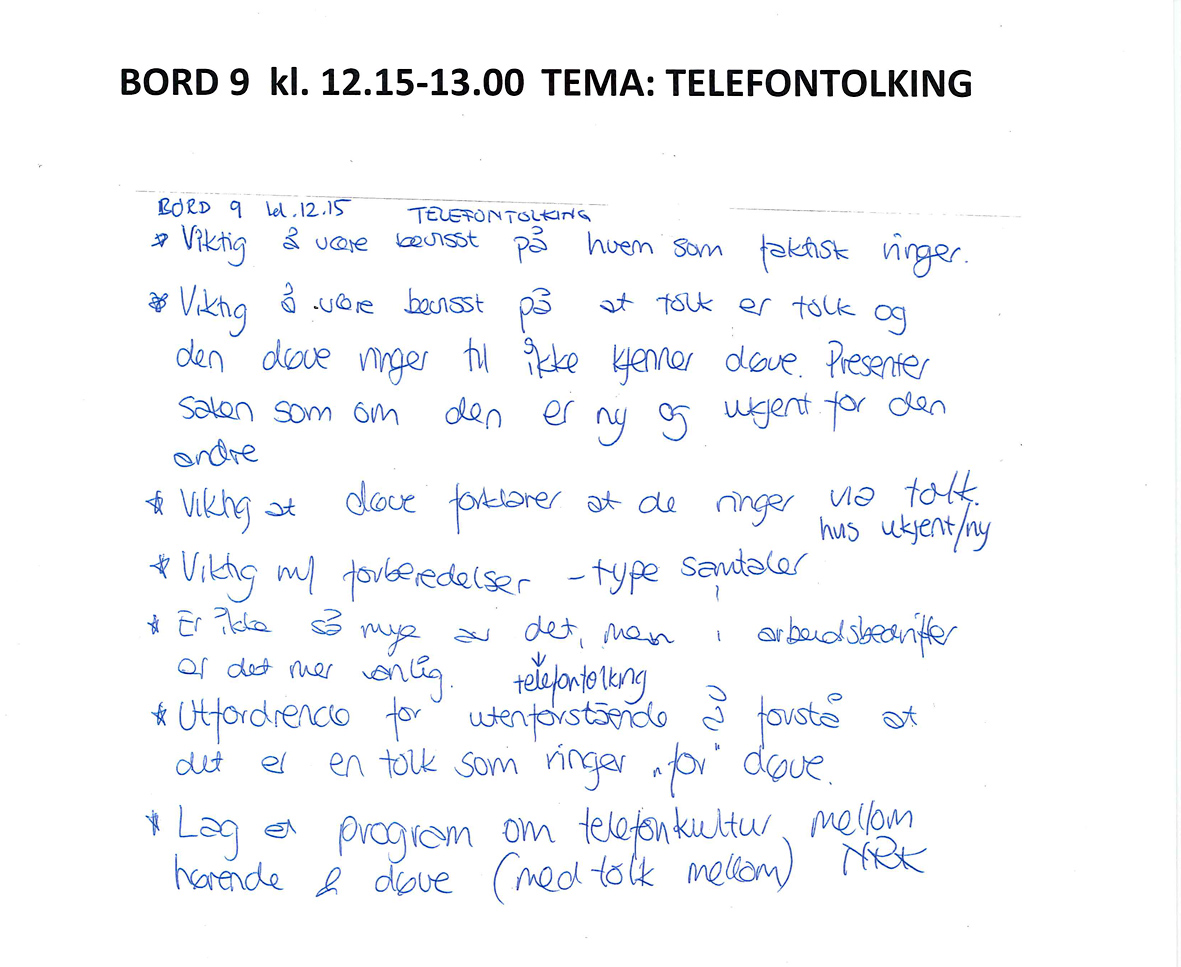 BORD 9 kl. 12.15-13.00 TEMA: TELEFONTOLKING
BORD 9 kl.12.15 TELEFONTOLKING
* Viktig å være bevisst på hvem som faktisk ringer.
* Viktig å være bevisst på at tolk er tolk og
den døve ringer til ikke kjenner døve. Presenter
saken som om den er ny og ukjent for den
andre
* Viktig at døve forklarer at de ringer via tolk.
hvis ukjent/ny
* Viktig m/ forberedelser - type samtaler
* Er ikke så mye av det, men i arbeidsbedrifter
er det mer vanlig. telefontolking
* Utfordrende for utenforstående å forstå at
det er en tolk som ringer „for" døve.
* Lag et program om telefonkultur mellom
hørende & døve (med tolk mellom) NRK